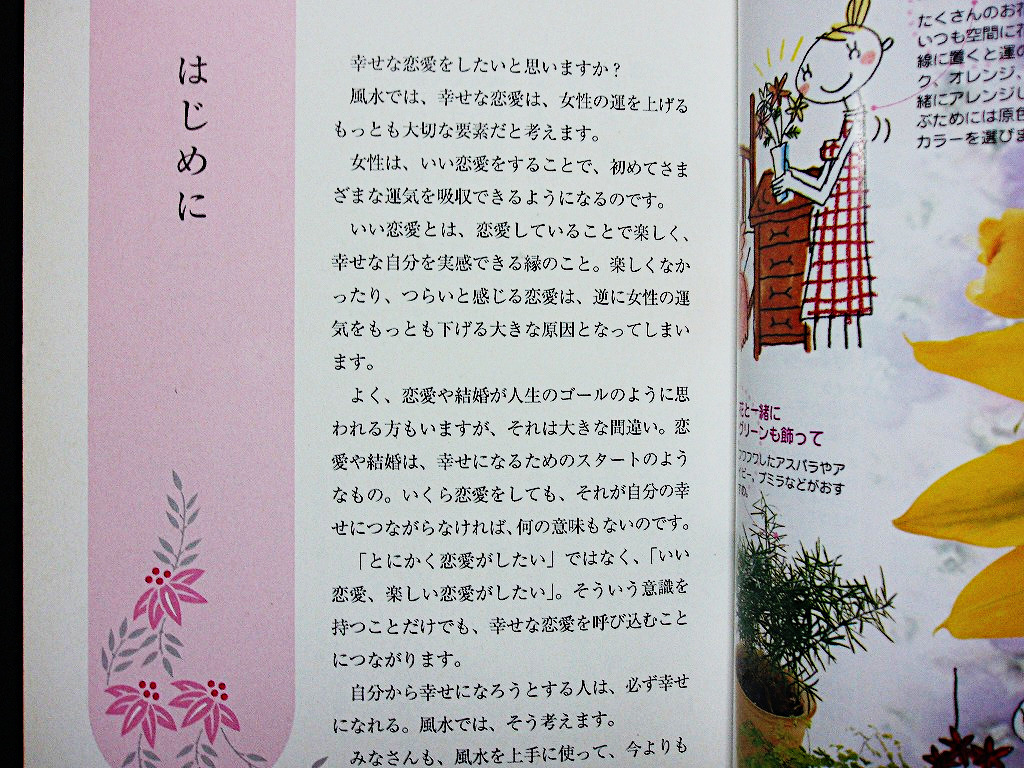 はじめに
幸せな恋愛をしたいと思いますか？
風水では、幸せな恋愛は、女性の運を上げる
もっとも大切な要素だと考えます。
女性は、いい恋愛をすることで、初めてさま
ざまな運気を吸収できるようになるのです。
いい恋愛とは、恋愛していることで楽しく、
幸せな自分を実感できる縁のこと。楽しくなか
ったり、つらいと感じる恋愛は、逆に女性の運
気をもっとも下げる大きな原因となってしまい
ます。
よく、恋愛や結婚が人生のゴールのように思
われる方もいますが、それは大きな間違い。恋
愛や結婚は、幸せになるためのスタートのよう
なもの。いくら恋愛をしても、それが自分の幸
せにつながらなければ、何の意味もないのです。
「とにかく恋愛がしたい」ではなく、「いい
恋愛、楽しい恋愛がしたい」。そういう意識を
持つことだけでも、幸せな恋愛を呼び込むこと
につながります。
自分から幸せになろうとする人は、必ず幸せ
になれる。風水では、そう考えます。
みなさんも、風水を上手に使って、今よりも
たくさんのお花
いつも空間に花
線に置くと運の
ク、オレンジ、
緒にアレンジし
ぶためには原色
カラーを選びま
花と一緒に
グリーンも飾って
フワフワしたアスパラやア
イビー、プミラなどがおす
すめ。